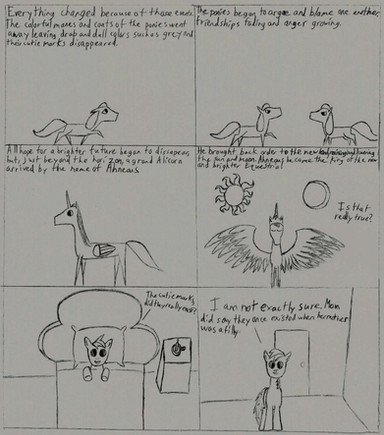 Everything changed because of those events.
The colorful manes and coats of the ponies went
away leaving drab and dull colors such as grey and
their cutie marks disappeared.
The ponies began to argue and blame one another
friendships fading and anger growing.
All hope for a brighter future began to disappear,
but, just beyond the horizon, a grand Alicorn
arrived by the name of Ahneas.
He brought back order to the new
the sun and moon. Ahneas became the king of the new
and brighter Equestria!
Is that
really true?
The cutie marks,
did they really exist?
I am not exactly sure. Mom
did say they once existed when her mother
was a filly.